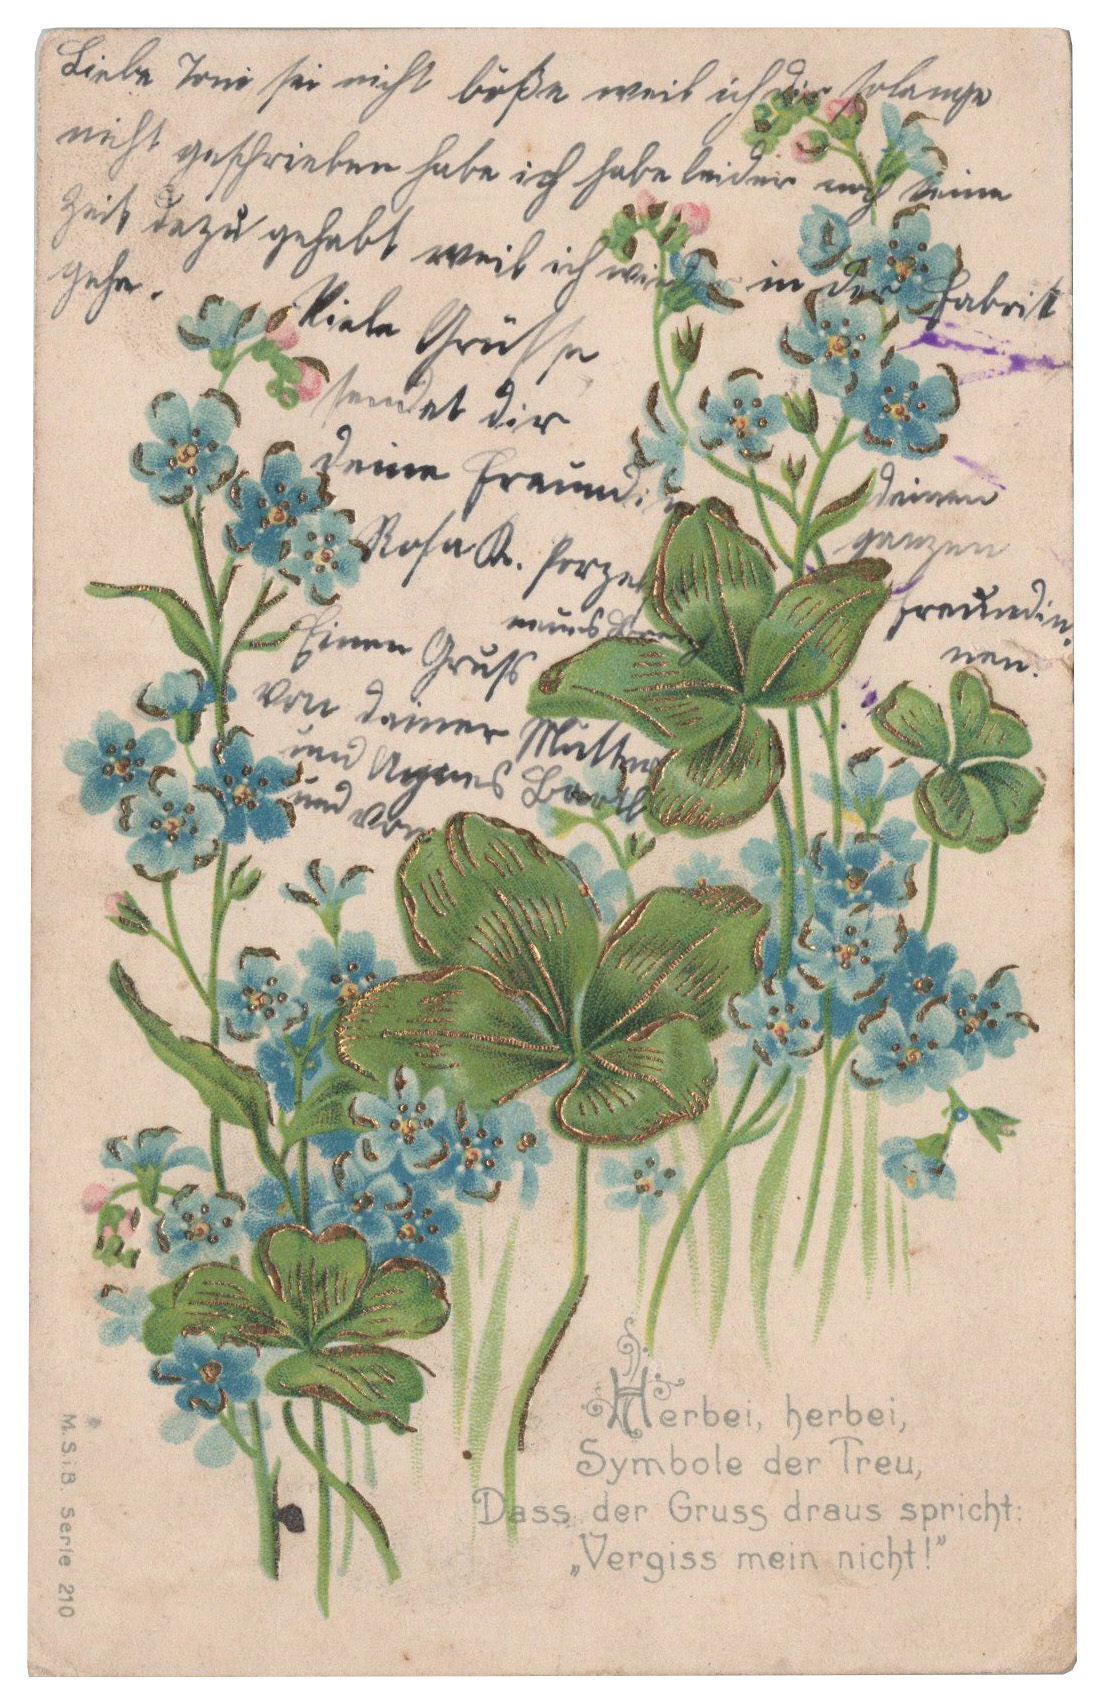 Liebe Toni sei nicht böße weil ich dir solange
nicht geschrieben habe ich habe leider noch keine
Zeit dazu gehabt weil ich wieder in der Fabrik
gehe.
Viele Grüsse
sendet dir
deine Freundin
Rosa K.
Einen Gruss
von deiner Mutter
und Agnes Barth
und von
deinen
ganzen
Freundin,
nen.
Herbei, herbei,
Symbole der Treu,
Dass der Gruss draus spricht:
„Vergiss mein nicht!"
M.S.i.B. Serie 210